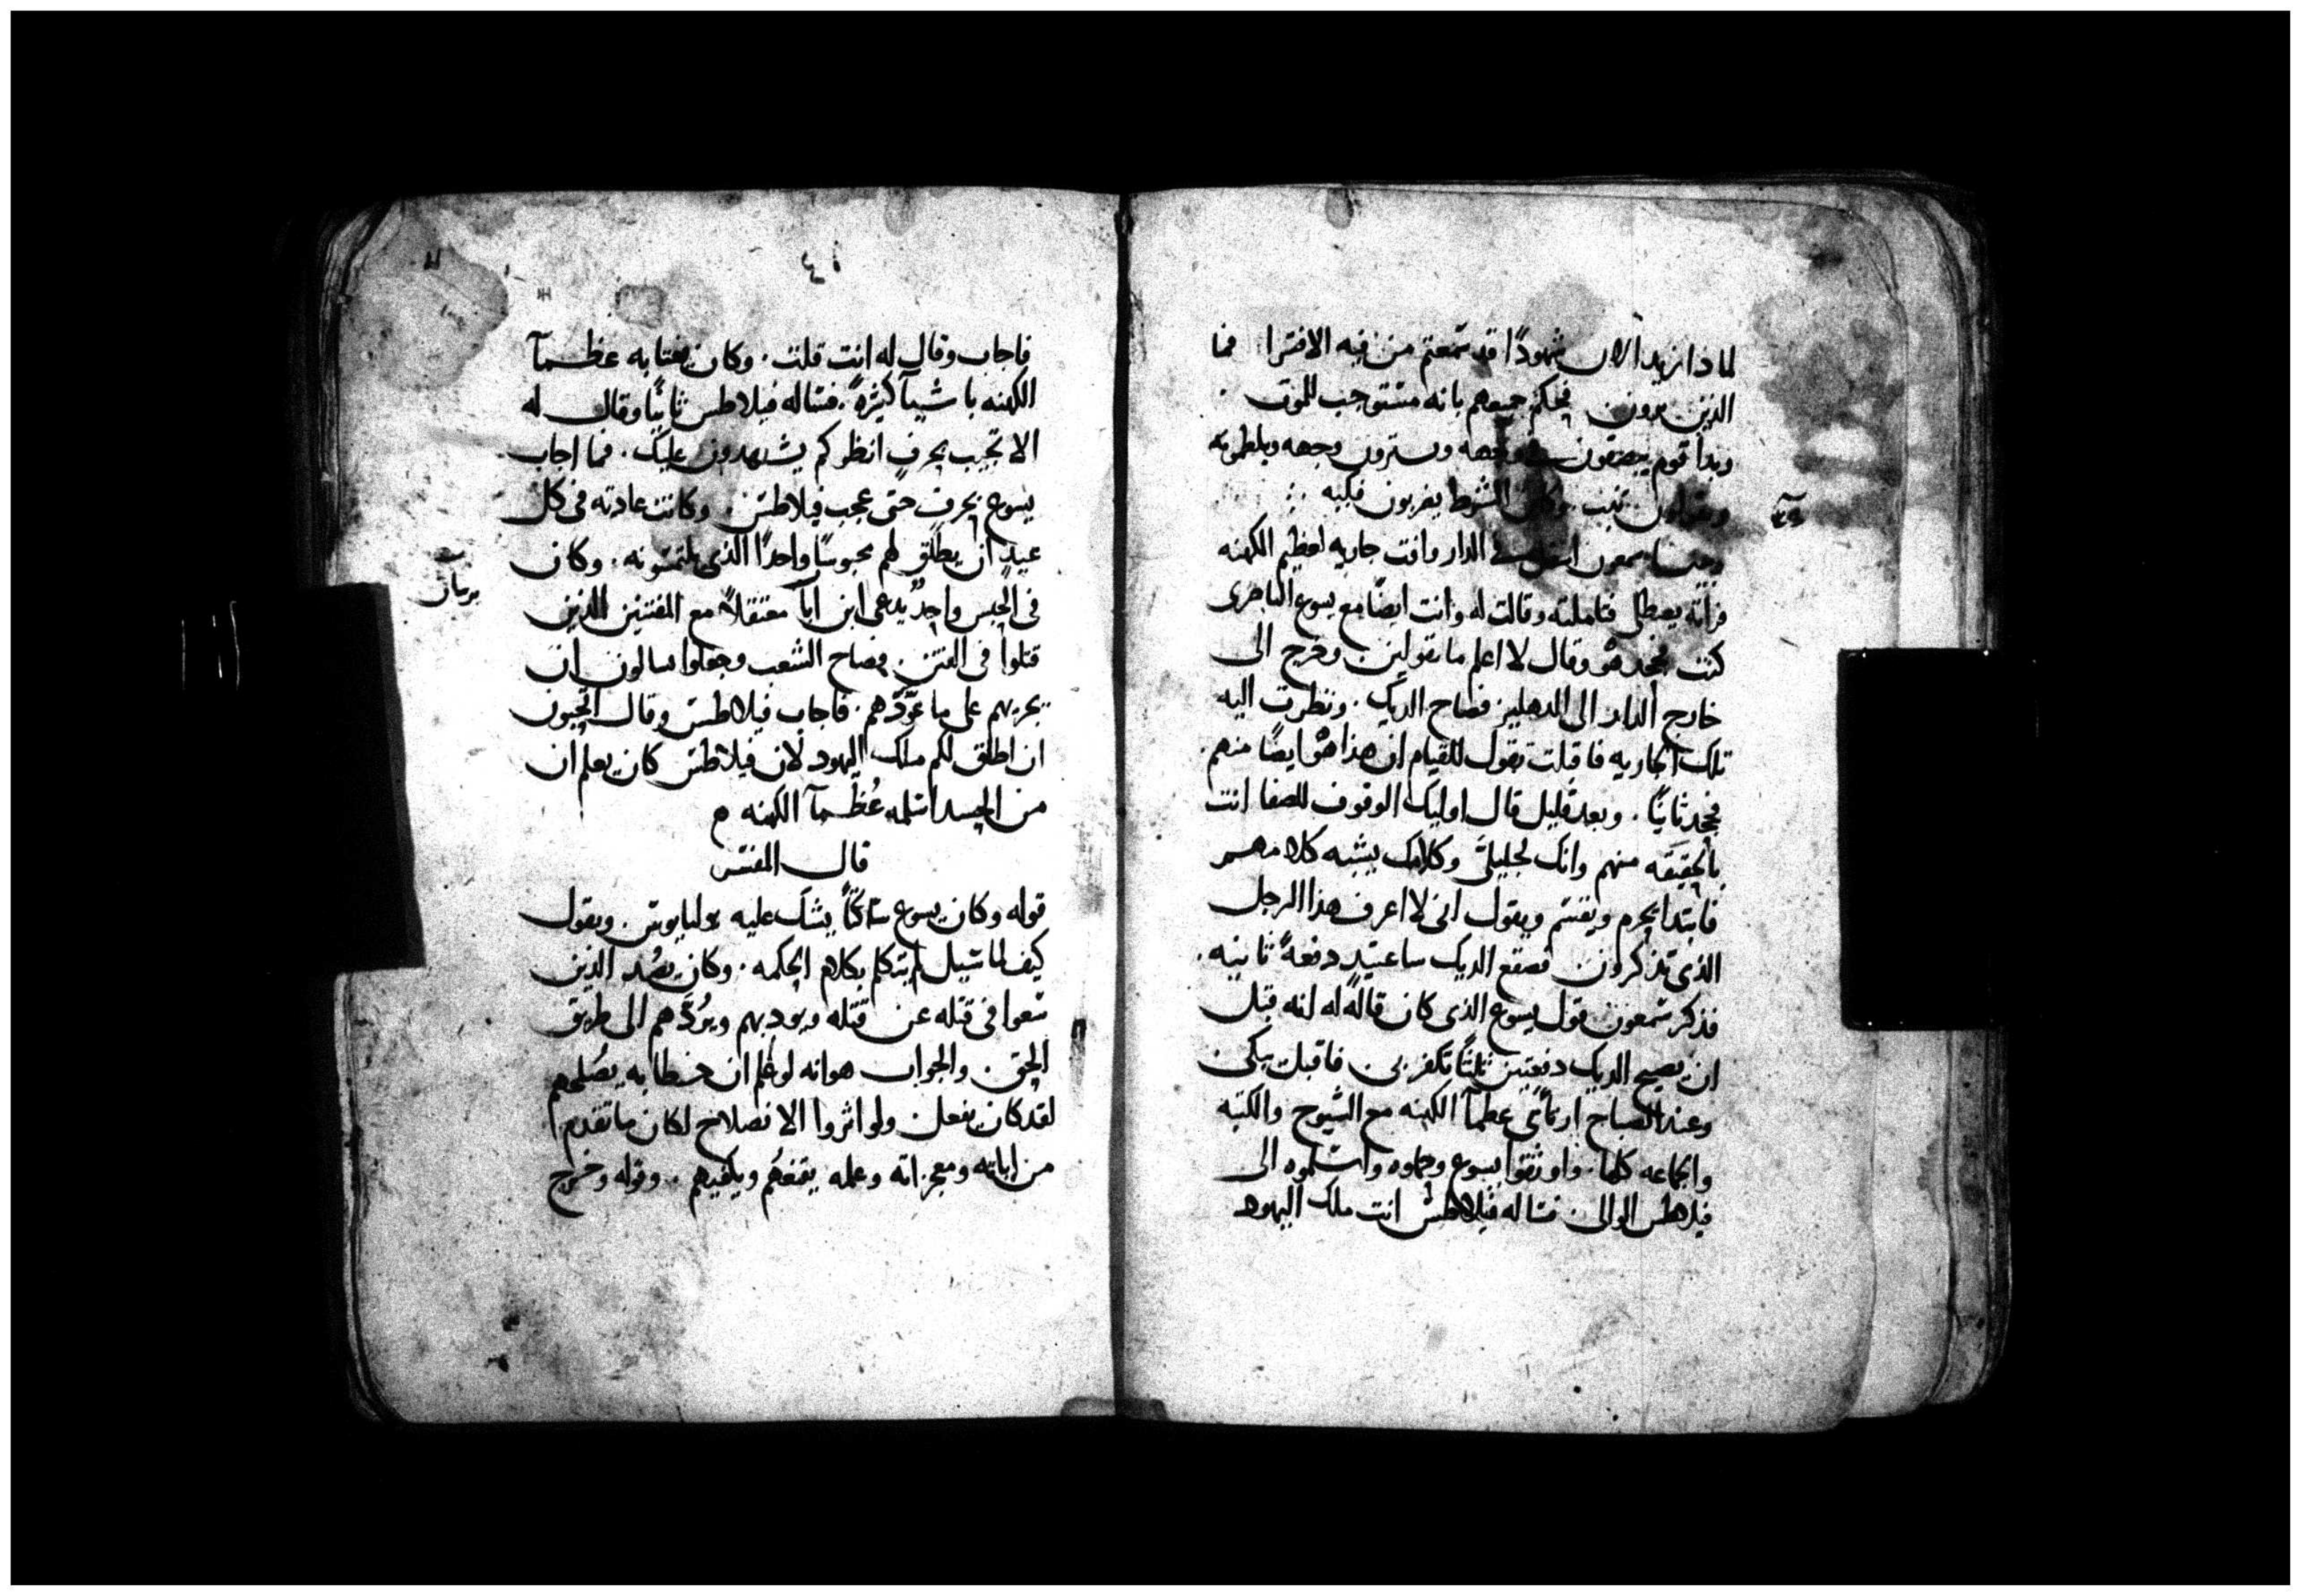 لماذا نريد الان شهودًا قد سمعتم من فيه الافترا فما
الذين ترون فحكم جميعهم بانه مستوجب للموت .
وبدا قوم يبصقون في وجهه ويسترون وجهه ويلطمونه
ويقولون تنب وكان الشرط يضربون فكيه
وبينما سمعون اسفل في الدار وافت جاريه لعظيم الكهنه
فراته يصطلى فتاملته وقالت له وانت ايضًا مع يسوع الناصرى
كنت فجحد هو وقال لا اعلم ما تقولين وخرج الى
خارج الدار الى الدهليز فصاح الديك . ونظرت اليه
تلك الجاريه فاقبلت تقول للقيام ان هذا هو ايضًا منهم .
فجحد ثانيًا . وبعد قليل قال اوليك الوقوف للصفا انت
بالحقيقه منهم وانك لجليلىّ وكلامك يشبه كلامهم
فابتدا يحرم ويقسم ويقول انى لا اعرف هذا الرجل
الذى تذكرون فصقع الديك ساعتيدٍ دفعةً ثانيه .
فذكر سمعون قول يسوع الذى كان قاله له انه قبل
ان يصيح الديك دفعتين ثلثًا تكفر بى فاقبل يبكى
وعند الصباح ارتأى عظمآ الكهنه مع الشيوخ والكتبه
والجماعه كلها . واوثقوا يسوع وحملوه واسلموه الى
فيلاطس الوالى فساله فيلاطس انت ملك اليهود
فاجاب وقال له انت قلت . وكان يغتابه عظمآ
الكهنه باشيآ كثيرةً . فساله فيلاطس ثانيًا وقال له
الا تجيب بحرفٍ انظر كم يشهدون عليك . فما اجاب
يسوع بحرف حتى عجب فيلاطس . وكانت عادته فى كل
عيدٍ ان يطلق لهم محبوسًا واحدًا الذى يلتمسونه . وكان
فى الحبس واحدٌ يدعى ابن ابآ معتقلاً مع المفتنين الذين
قتلوا فى الفتن . فصاح الشعب وجعلوا يسالون ان
يجريهم على ما عوّدهم . فاجاب فيلاطس وقال اتحبون
ان اطلق لكم ملك اليهود لان فيلاطس كان يعلم ان
من الحسد اسلمه عُظمآ الكهنه ه
قال المفسر
قوله وكان يسوع ساكتًا يشك عليه يوليانوس . ويقول
كيف لما سيل لم يتكلم بكلام الحكمه . وكان يصُد الذين
سعوا فى قتله عن قتله ويودبهم ويرُدّهم الى طريق
الحق . والجواب هو انه لو علم ان خطابه يصُلحهم
لقد كان يفعل ولو اثروا الانصلاح لكان ما تقدم
من اياته ومعجزاته وعمله يقنعهُم ويكفيهم .. وقوله وخرج